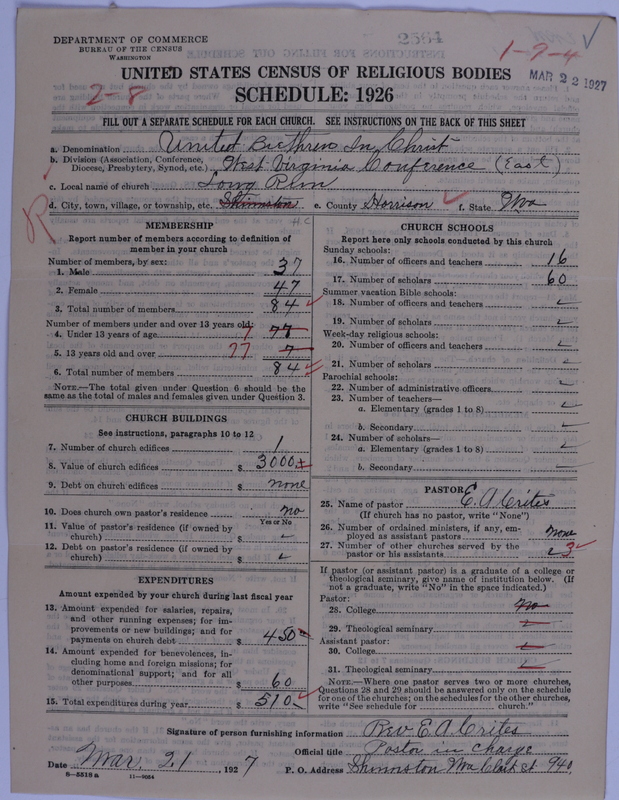 DEPARTMENT OF COMMERCE
BUREAU OF THE CENSUS
WASHINGTON
2564
1-9-4
MAR 22 1927
UNITED STATES CENSUS OF RELIGIOUS BODIES
2-8
SCHEDULE: 1926
FILL OUT A SEPARATE SCHEDULE FOR EACH CHURCH. SEE INSTRUCTIONS ON THE BACK OF THIS SHEET
a. Denomination United Brethren In Christ
b. Division (Association, Conference, Diocese, Presbytery, Synod, etc.) West Virginia Conference (East)
c. Local name of church Long Run
d. City, town, village, or township, etc. Shinnston e. County Harrison f. State Wva
R
H.C
MEMBERSHIP
Report number of members according to definition of member in your church
Number of members, by sex:
1. Male 37
2. Female 47
3. Total number of members 84
Number of members under and over 13 years old:
4. Under 13 years of age 7 77
5. 13 years old and over 77 7
6. Total number of members 84
NOTE.—The total given under Question 6 should be the same as the total of males and females given under Question 3.
CHURCH BUILDINGS
See instructions, paragraphs 10 to 12
7. Number of church edifices 1
8. Value of church edifices $ 3000
9. Debt on church edifices $ none
10. Does church own pastor's residence no
Yes or No
11. Value of pastor's residence (if owned by church) $
12. Debt on pastor's residence (if owned by church) $
EXPENDITURES
Amount expended by your church during last fiscal year
13. Amount expended for salaries, repairs, and other running expenses; for improvements or new buildings; and for payments on church debt $ 450
14. Amount expended for benevolences, including home and foreign missions; for denominational support; and for all other purposes $ 60
15. Total expenditures during year $ 510
CHURCH SCHOOLS
Report here only schools conducted by this church
Sunday schools:
16. Number of officers and teachers 16
17. Number of scholars 60
Summer vacation Bible schools:
18. Number of officers and teachers
19. Number of scholars
Week-day religious schools:
20. Number of officers and teachers
21. Number of scholars
Parochial schools:
22. Number of administrative officers
23. Number of teachers—
a. Elementary (grades 1 to 8)
b. Secondary
24. Number of scholars—
a. Elementary (grades 1 to 8)
b. Secondary
PASTOR
25. Name of pastor E. A Crites
(If church has no pastor, write "None")
26. Number of ordained ministers, if any, employed as assistant pastors none
27. Number of other churches served by the pastor or his assistants 3
If pastor (or assistant pastor) is a graduate of a college or theological seminary, give name of institution below. (If not a graduate, write "No" in the space indicated.)
Pastor:
28. College no
29. Theological seminary
Assistant pastor:
30. College
31. Theological seminary
NOTE.—Where one pastor serves two or more churches, Questions 28 and 29 should be answered only on the schedule for one of the churches; on the schedules for the other churches, write "See schedule for church."
Signature of person furnishing information Rev. E A Crites
Official title Pastor in charge
Date Mar. 21, 1927
P. O. Address Shinnston Wva Clark St 940
8-5518 a 11-9034